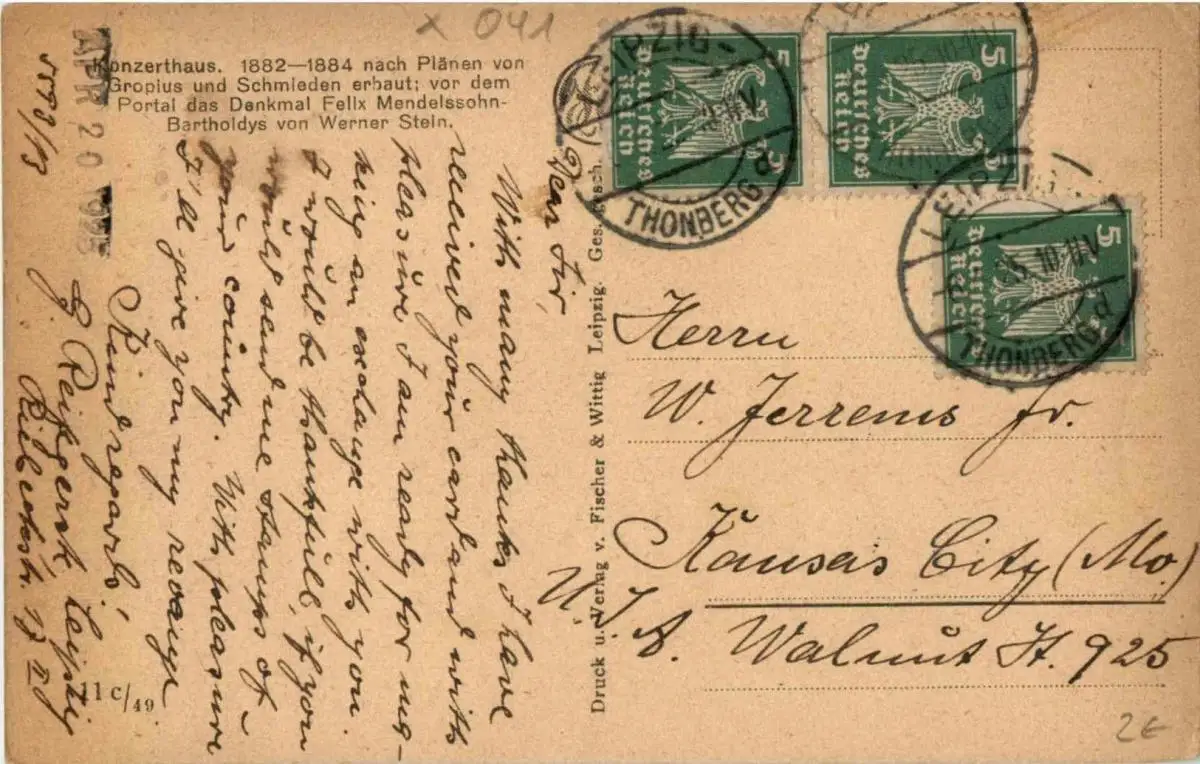 x 041
Konzerthaus. 1882—1884 nach Plänen von
Gropius und Schmieden erbaut; vor dem
Portal das Denkmal Felix Mendelssohn-
Bartholdys von Werner Stein.
APR 20 1925
Dear Sir,
With many thanks I have
received your card and with
pleasure I am ready for ma-
king an exchange with you
I would be thankfull, if you
would send me stamps of
your country. With pleasure
I'll give you my revange
Kind regards,
G. Leipzig
11 c/49
Druck u. Verlag v. Fischer & Wittig Leipzig. Ges. gesch.
5 Deutsches Reich 5
5 Deutsches Reich 5
5 Deutsches Reich
LEIPZIG
THONBERG
d
LEIPZIG
25. 10-11V
THONBERG
d
Herrn
W. Jerrems Jr.
Kansas City (Mo)
U.S.A.
Walnut St. 925
2€